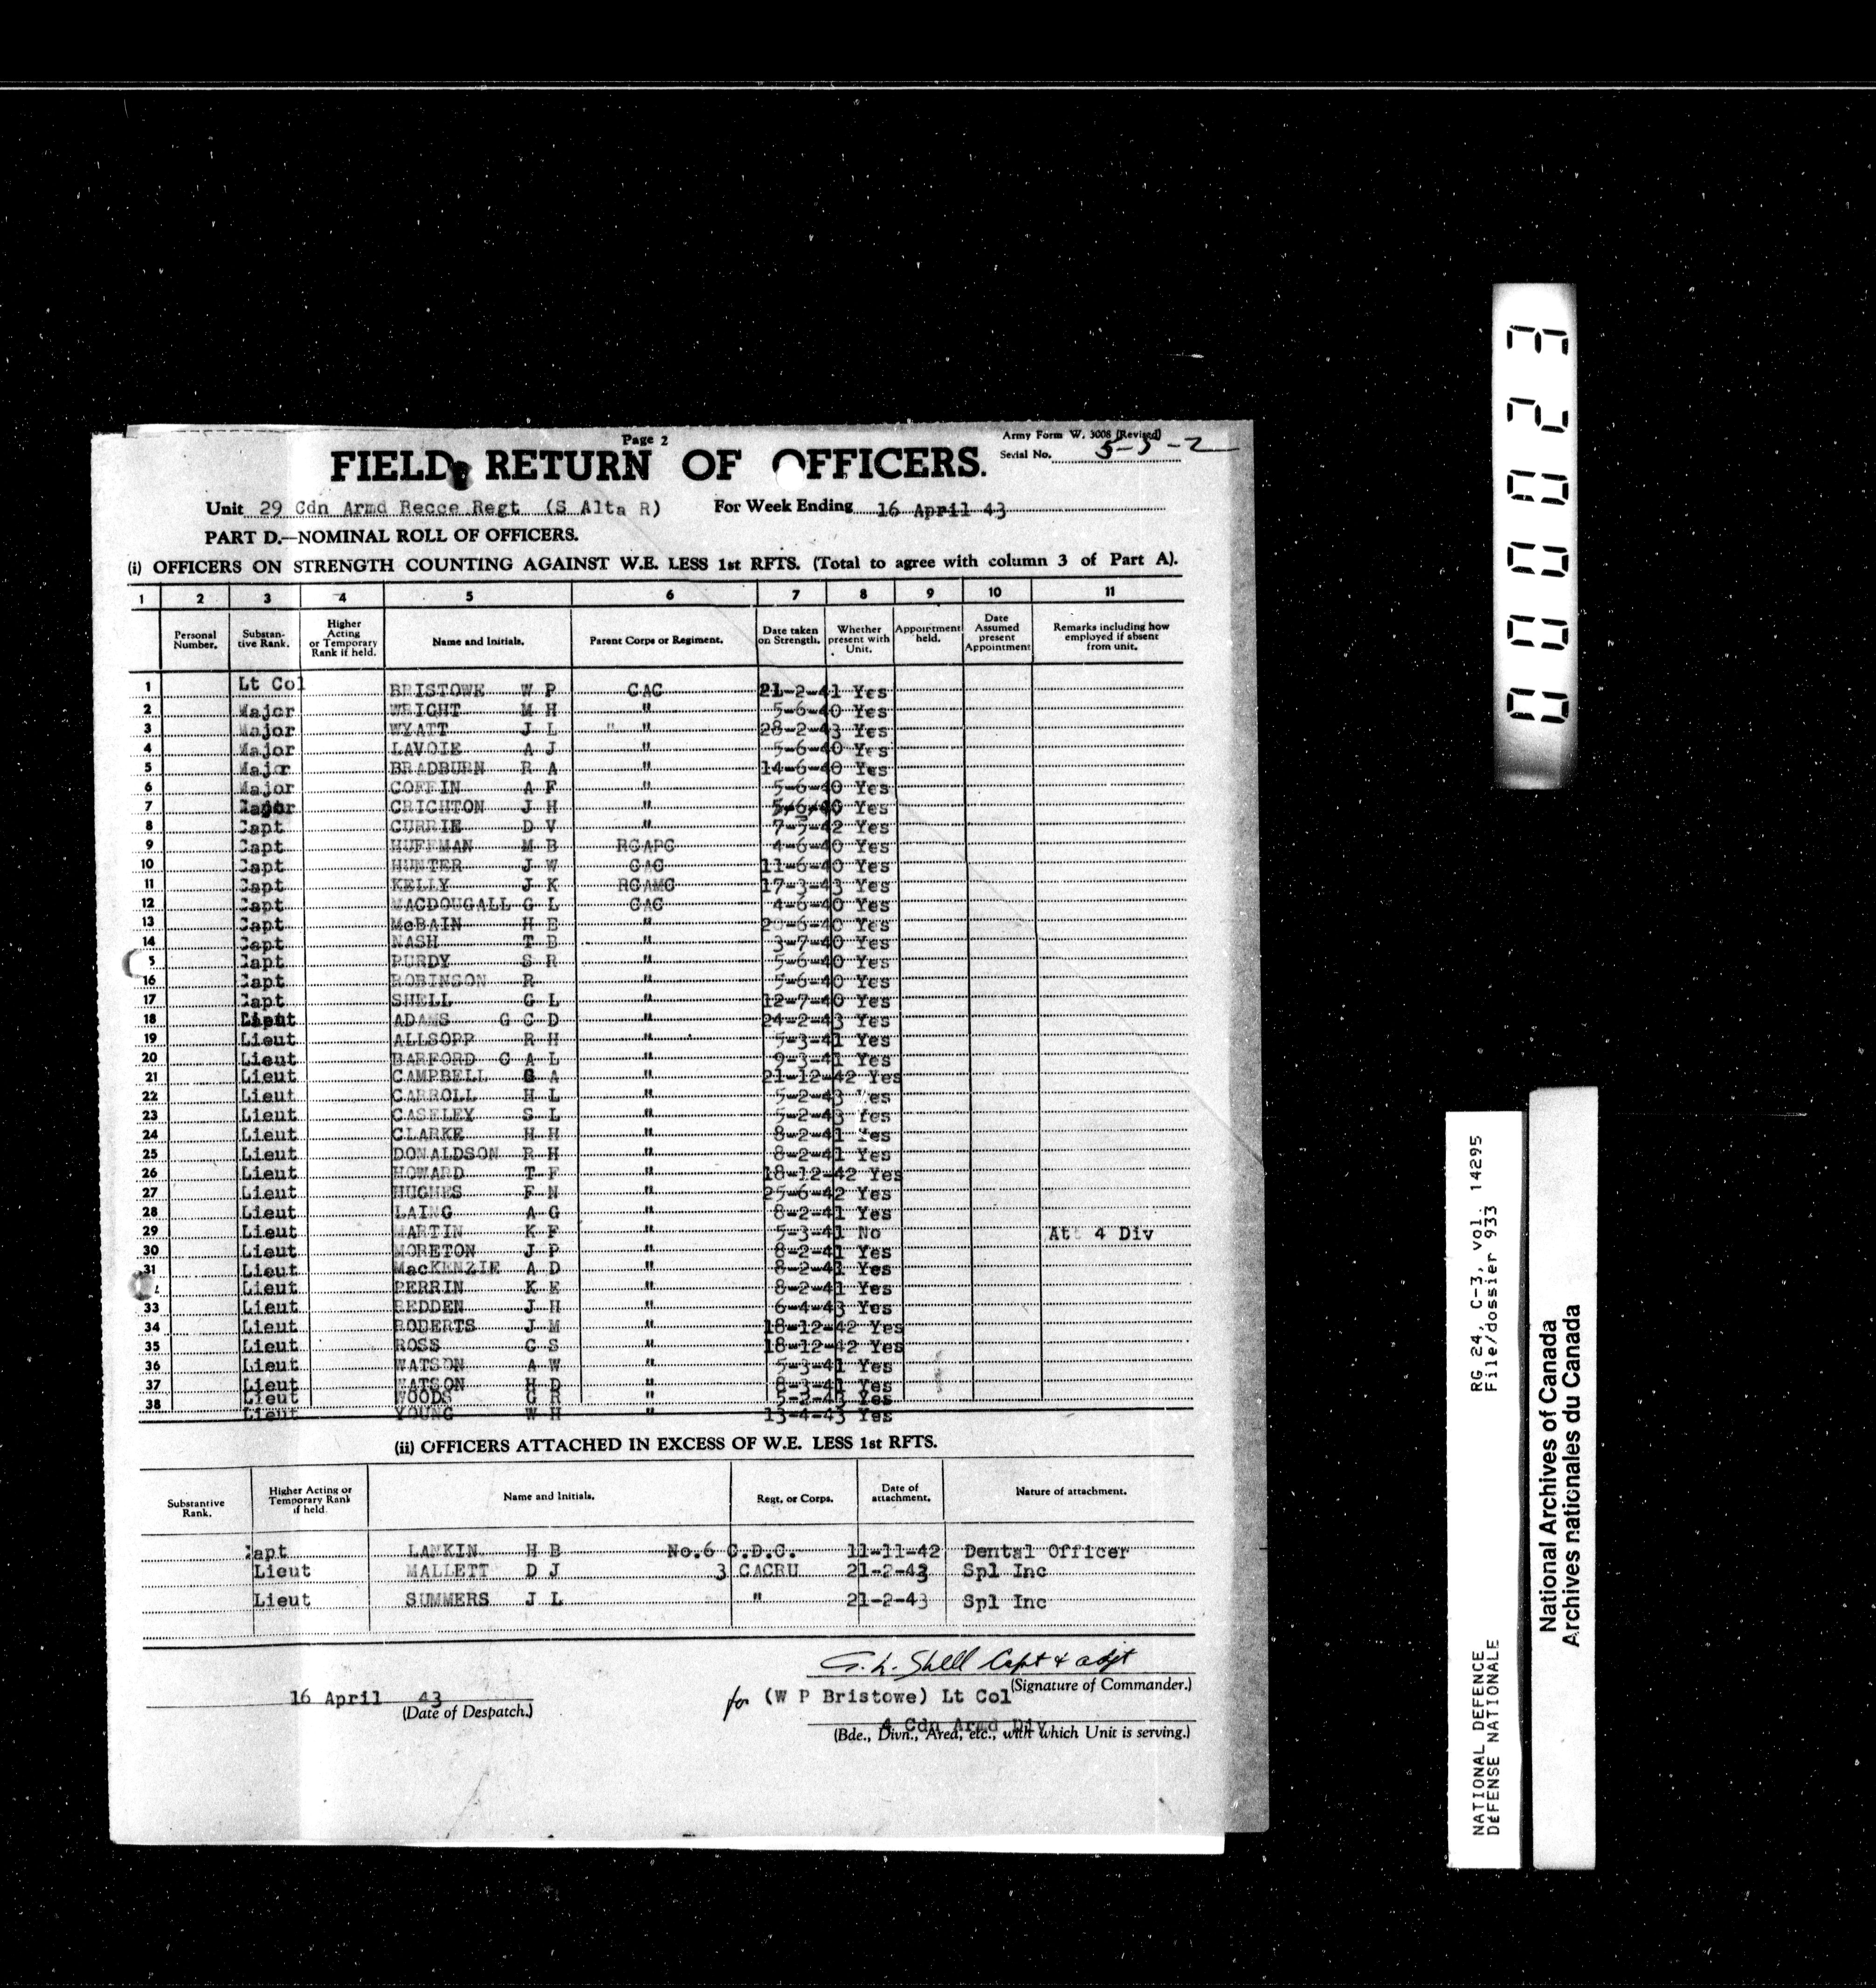 Page 2
Army Form W. 3008 (Revised)
FIELD RETURN OF OFFICERS.
Serial No. 5-5-2
Unit 29 Cdn Armd Recce Regt (S Alta R) For Week Ending 16 April 43
PART D.—NOMINAL ROLL OF OFFICERS.
(i) OFFICERS ON STRENGTH COUNTING AGAINST W.E. LESS 1st RFTS. (Total to agree with column 3 of Part A).
1 2 3 4 5 6 7 8 9 10 11
Personal Number. Substantive Rank. Higher Acting or Temporary Rank if held. Name and Initials. Parent Corps or Regiment. Date taken on Strength. Whether present with Unit. Appointment held. Date Assumed present Appointment Remarks including how employed if absent from unit.
1 Lt Col BRISTOWE W P CAC 21-2-41 Yes
2 Major WRIGHT M H " 5-6-40 Yes
3 Major WYATT J L " " 28-2-43 Yes
4 Major LAVOIE A J " 5-6-40 Yes
5 Major BRADBURN R A " 14-6-40 Yes
6 Major COFFIN A F " 5-6-40 Yes
7 CRICHTON J H " 5/6/40 Yes
8 Capt CURRIE D V " 7-5-42 Yes
9 Capt HUFFMAN M B RCAPC 4-6-40 Yes
10 Capt HUNTER J W CAC 11-6-40 Yes
11 Capt KELLY J K RCAMC 17-3-43 Yes
12 Capt MACDOUGALL G L CAC 4-6-40 Yes
13 Capt McBAIN H E " 20-6-40 Yes
14 Capt NASH T B " 3-7-40 Yes
5 Capt PURDY S R " 5-6-40 Yes
16 Capt ROBINSON R " 5-6-40 Yes
17 Capt SHELL G L " 12-7-40 Yes
18 Lieut ADAMS G C D " 24-2-43 Yes
19 Lieut ALLSOPP R H " 5-3-41 Yes
20 Lieut BARFORD C A L " 9-3-41 Yes
21 Lieut CAMPBELL G A " 21-12-42 Yes
22 Lieut CARROLL H L " 5-2-43 Yes
23 Lieut CASELEY S L " 5-2-43 Yes
24 Lieut CLARKE H H " 8-2-41 Yes
25 Lieut DONALDSON R H " 8-2-41 Yes
26 Lieut HOWARD T F " 18-12-42 Yes
27 Lieut HUGHES F N " 25-6-42 Yes
28 Lieut LAING A G " 8-2-41 Yes
29 Lieut MARTIN K F " 5-3-41 No Att 4 Div
30 Lieut MORETON J P " 8-2-41 Yes
31 Lieut MacKENZIE A D " 8-2-43 Yes
Lieut PERRIN K E " 8-2-41 Yes
33 Lieut REDDEN J H " 6-4-43 Yes
34 Lieut ROBERTS J M " 18-12-42 Yes
35 Lieut ROSS C S " 18-12-42 Yes
36 Lieut WATSON A W " 5-3-41 Yes
37 Lieut WATSON H D " 8-3-41 Yes
38 Lieut WOODS G R " 5-2-43 Yes
Lieut YOUNG W H " 13-4-43 Yes
(ii) OFFICERS ATTACHED IN EXCESS OF W.E. LESS 1st RFTS.
Substantive Rank. Higher Acting or Temporary Rank if held. Name and Initials. Regt. or Corps. Date of attachment. Nature of attachment.
Capt LAMKIN H B No.6 C.D.C. 11-11-42 Dental Officer
Lieut MALLETT D J 3 CACRU 21-2-43 Spl Inc
Lieut SUMMERS J L " 21-2-43 Spl Inc
G. L. Shell Capt & adjt
(Signature of Commander.)
16 April 43 for (W P Bristowe) Lt Col
(Date of Despatch.)
4 Cdn Armd Div
(Bde., Divn., Area, etc., with which Unit is serving.)
000023
NATIONAL DEFENCE RG 24, C-3, vol. 14295
DÉFENSE NATIONALE File/dossier 933
National Archives of Canada
Archives nationales du Canada